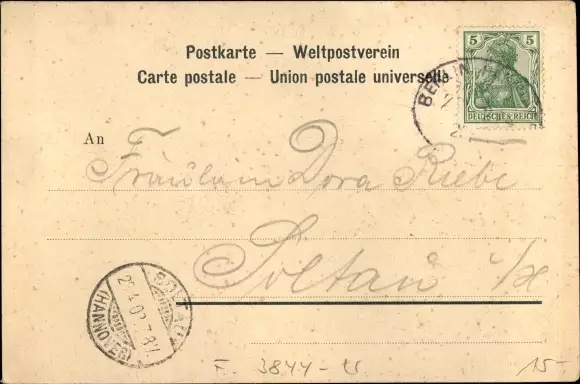 Postkarte — Weltpostverein
Carte postale — Union postale universelle
5 5
DEUTSCHES REICH
BERLIN
An
Fräulein Dora Riebe
Soltau i/H
SOLTAU
(HANNOVER)
F. 3844
15-